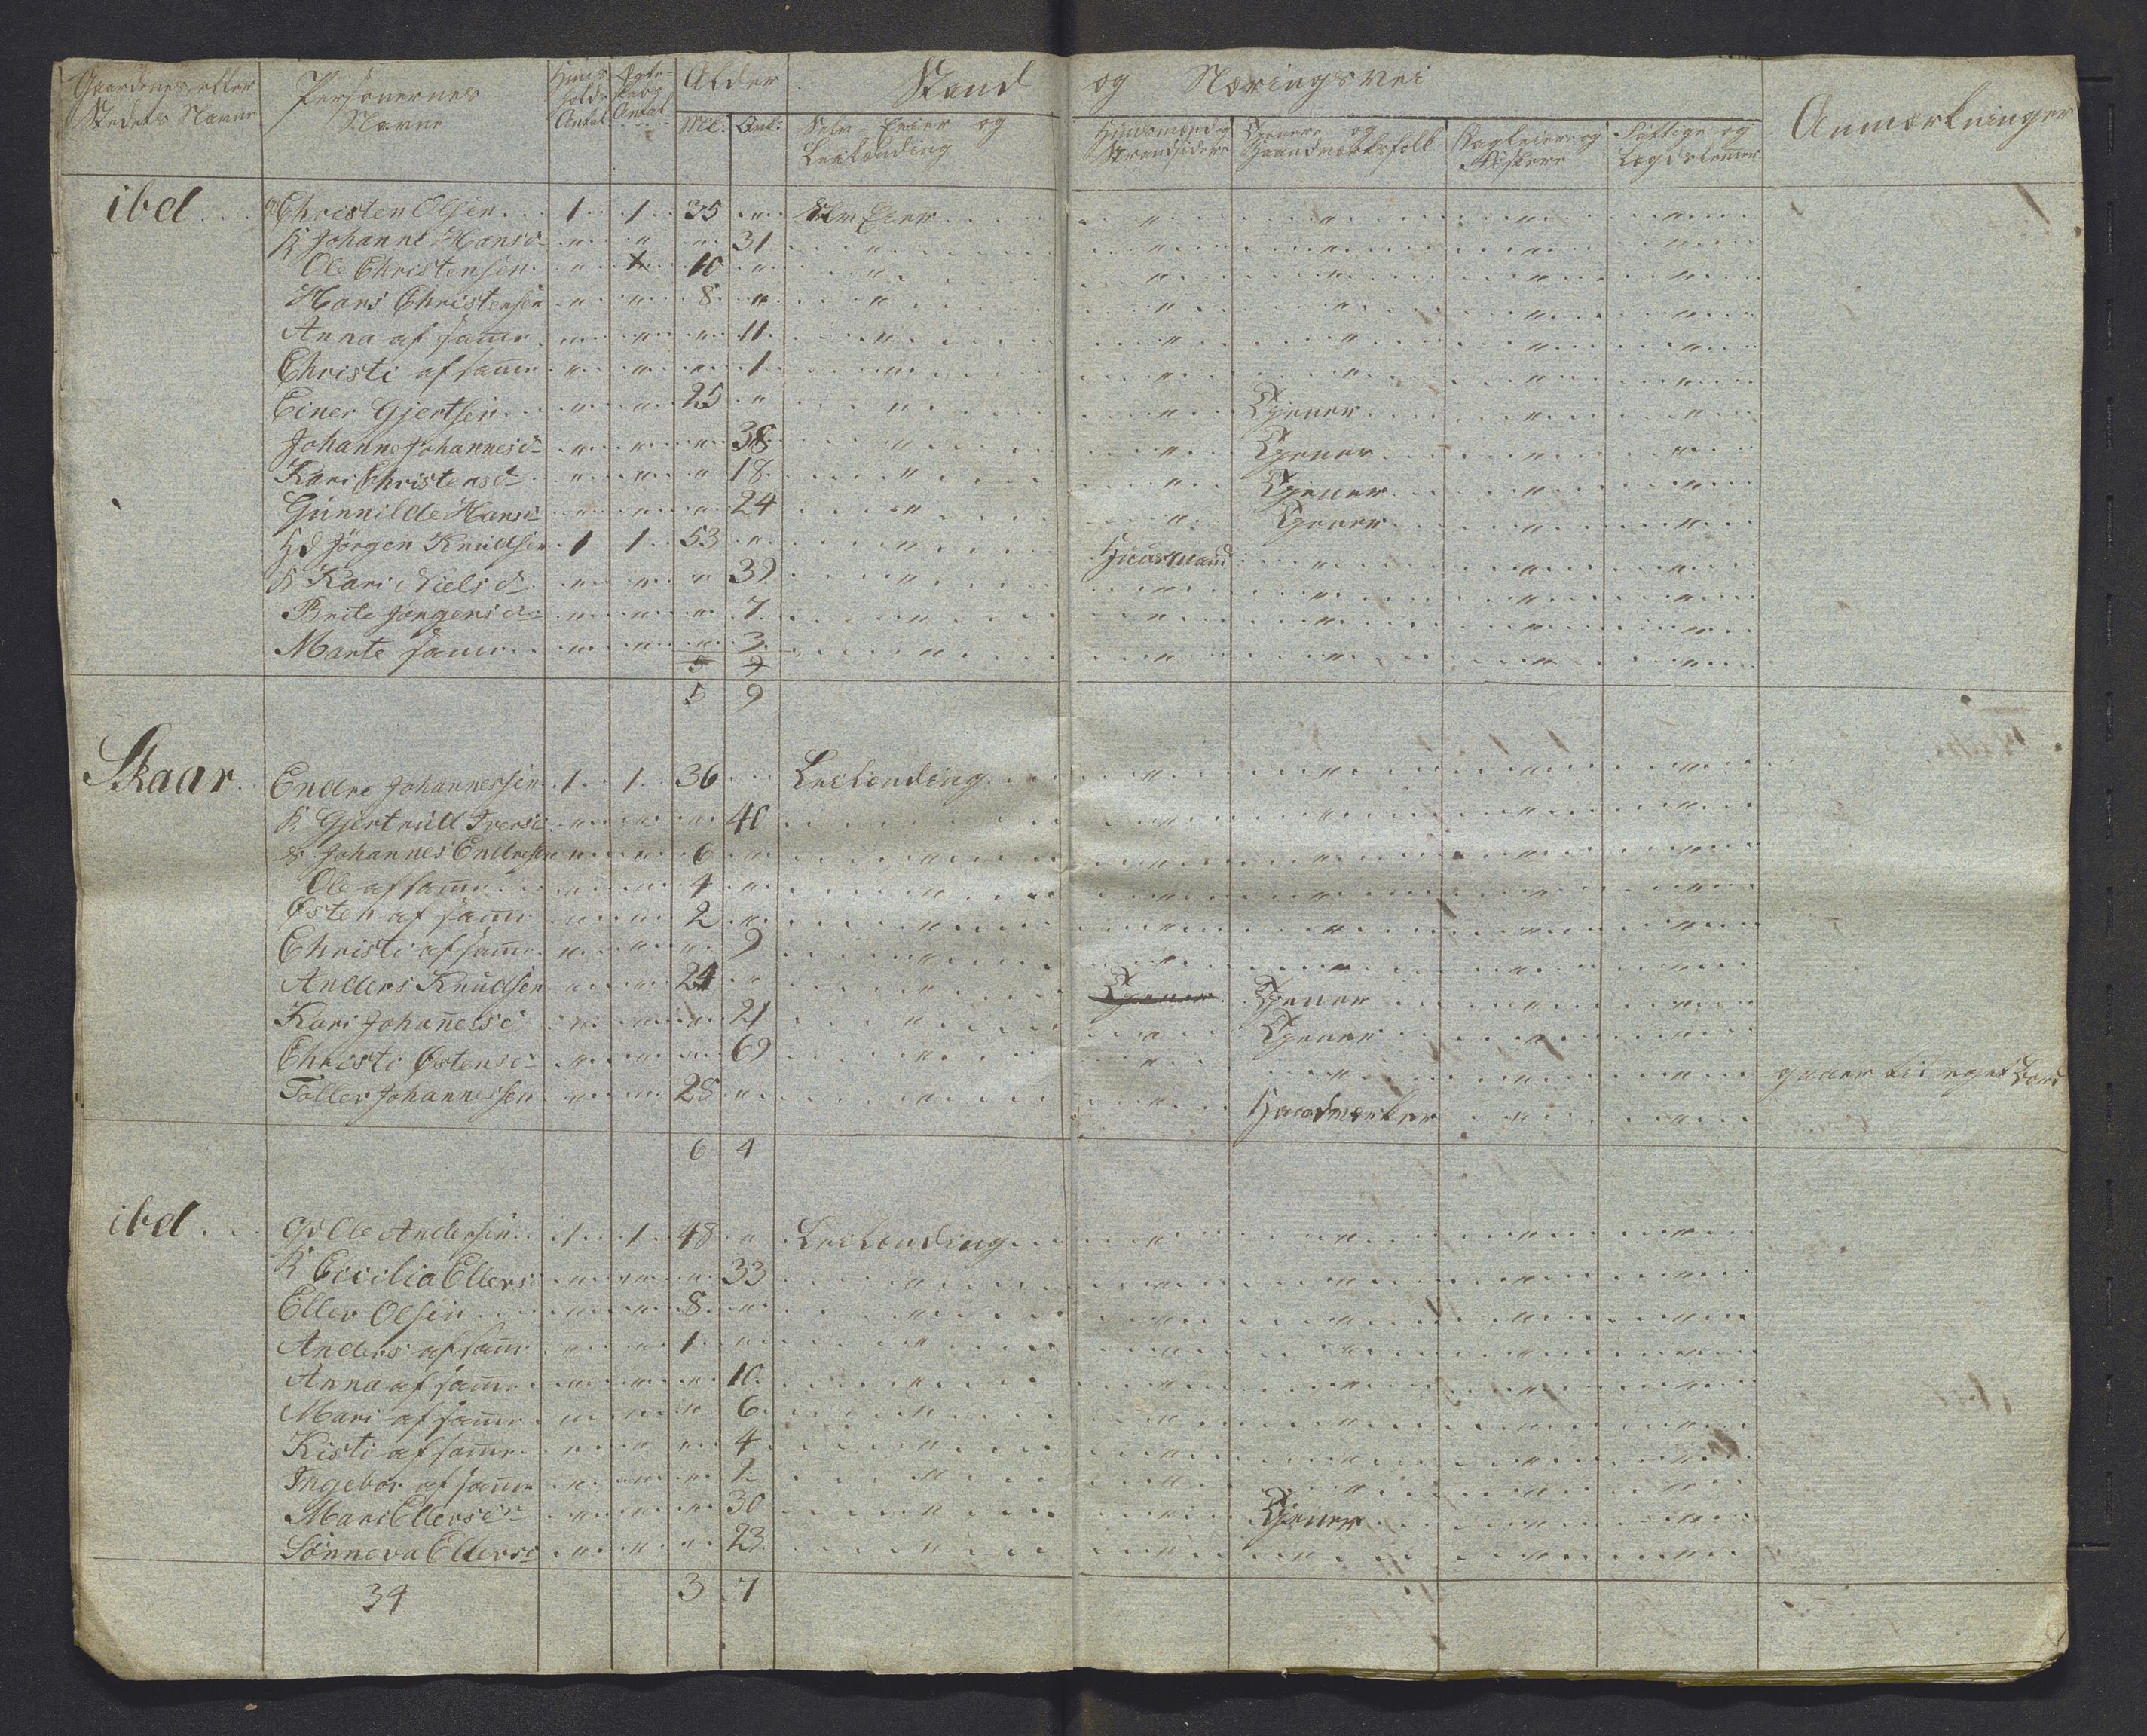 Gaardenes eller Stedets Navne | Personernes Navne | Huus holds Antal | Egte- skabs Antal | Alder Ml: Qvl: | Stand og Næringsvei | Anmærkninger
Selv Eier og Leilænding | Huusmænd og Strandsidere | Tjenere og Haandværksfolk | Bagleiere og Fiskere | Fattige og Lægdslemmer
ibd . . . G Christen Olsen . . . 1 . . 1 . . 35 . " . Selv Eier
K Johanne Hansd " " " 31 "
Ole Christensen " " 10 " "
Hans Christensen " " 8 " "
Anna af samme " " " 11 "
Christi af samme " " " 1 "
Einer Gjertsen " " 25 " " " Tjener
Johanne Johannesd " " " 38 " " Tjener
Kari Christensd " " " 18 " " Tjener
Gunnilde Hansd " " " 24 " " Tjener
Hd Jørgen Knudsen 1 1 53 " " Huusmand
K Kari Nielsd " " " 39 "
Brite Jørgensd " " " 7 "
Marte samme " " " 3 "
5 9
5 9
Skaar . . Endre Johannessen 1 . . 1 . . 36 . . . Leilænding
K Gjertrud Iversd " " " 40
S Johannes Endresen " " 6 " "
Ole af samme " " 4 " "
Østen af samme " " 2 " "
Christi af samme " " " 9 "
Anders Knudsen " " 24 " " Tjener Tjener
Kari Johannesd " " " 21 " " Tjener
Christi Østensd " " " 69 " " " gaaer til eget Bord
Toller Johannessen " " 28 " " " Haandverker
6 4
ibd . . . Gd Ole Andersen 1 . . 1 . . 48 " Leilænding
K Cecilia Ellers: " " " 33 "
Eller Olsen " " 8 " "
Anders af samme " " 1 " "
Anna af samme " " " 10 "
Mari af samme " " " 6 "
Kisti af samme " " " 4 "
Ingebor af samme " " " 2 "
Mari Ellersd " " " 30 " " Tjener
Sønneva Ellersd " " " 23 "
34 3 7